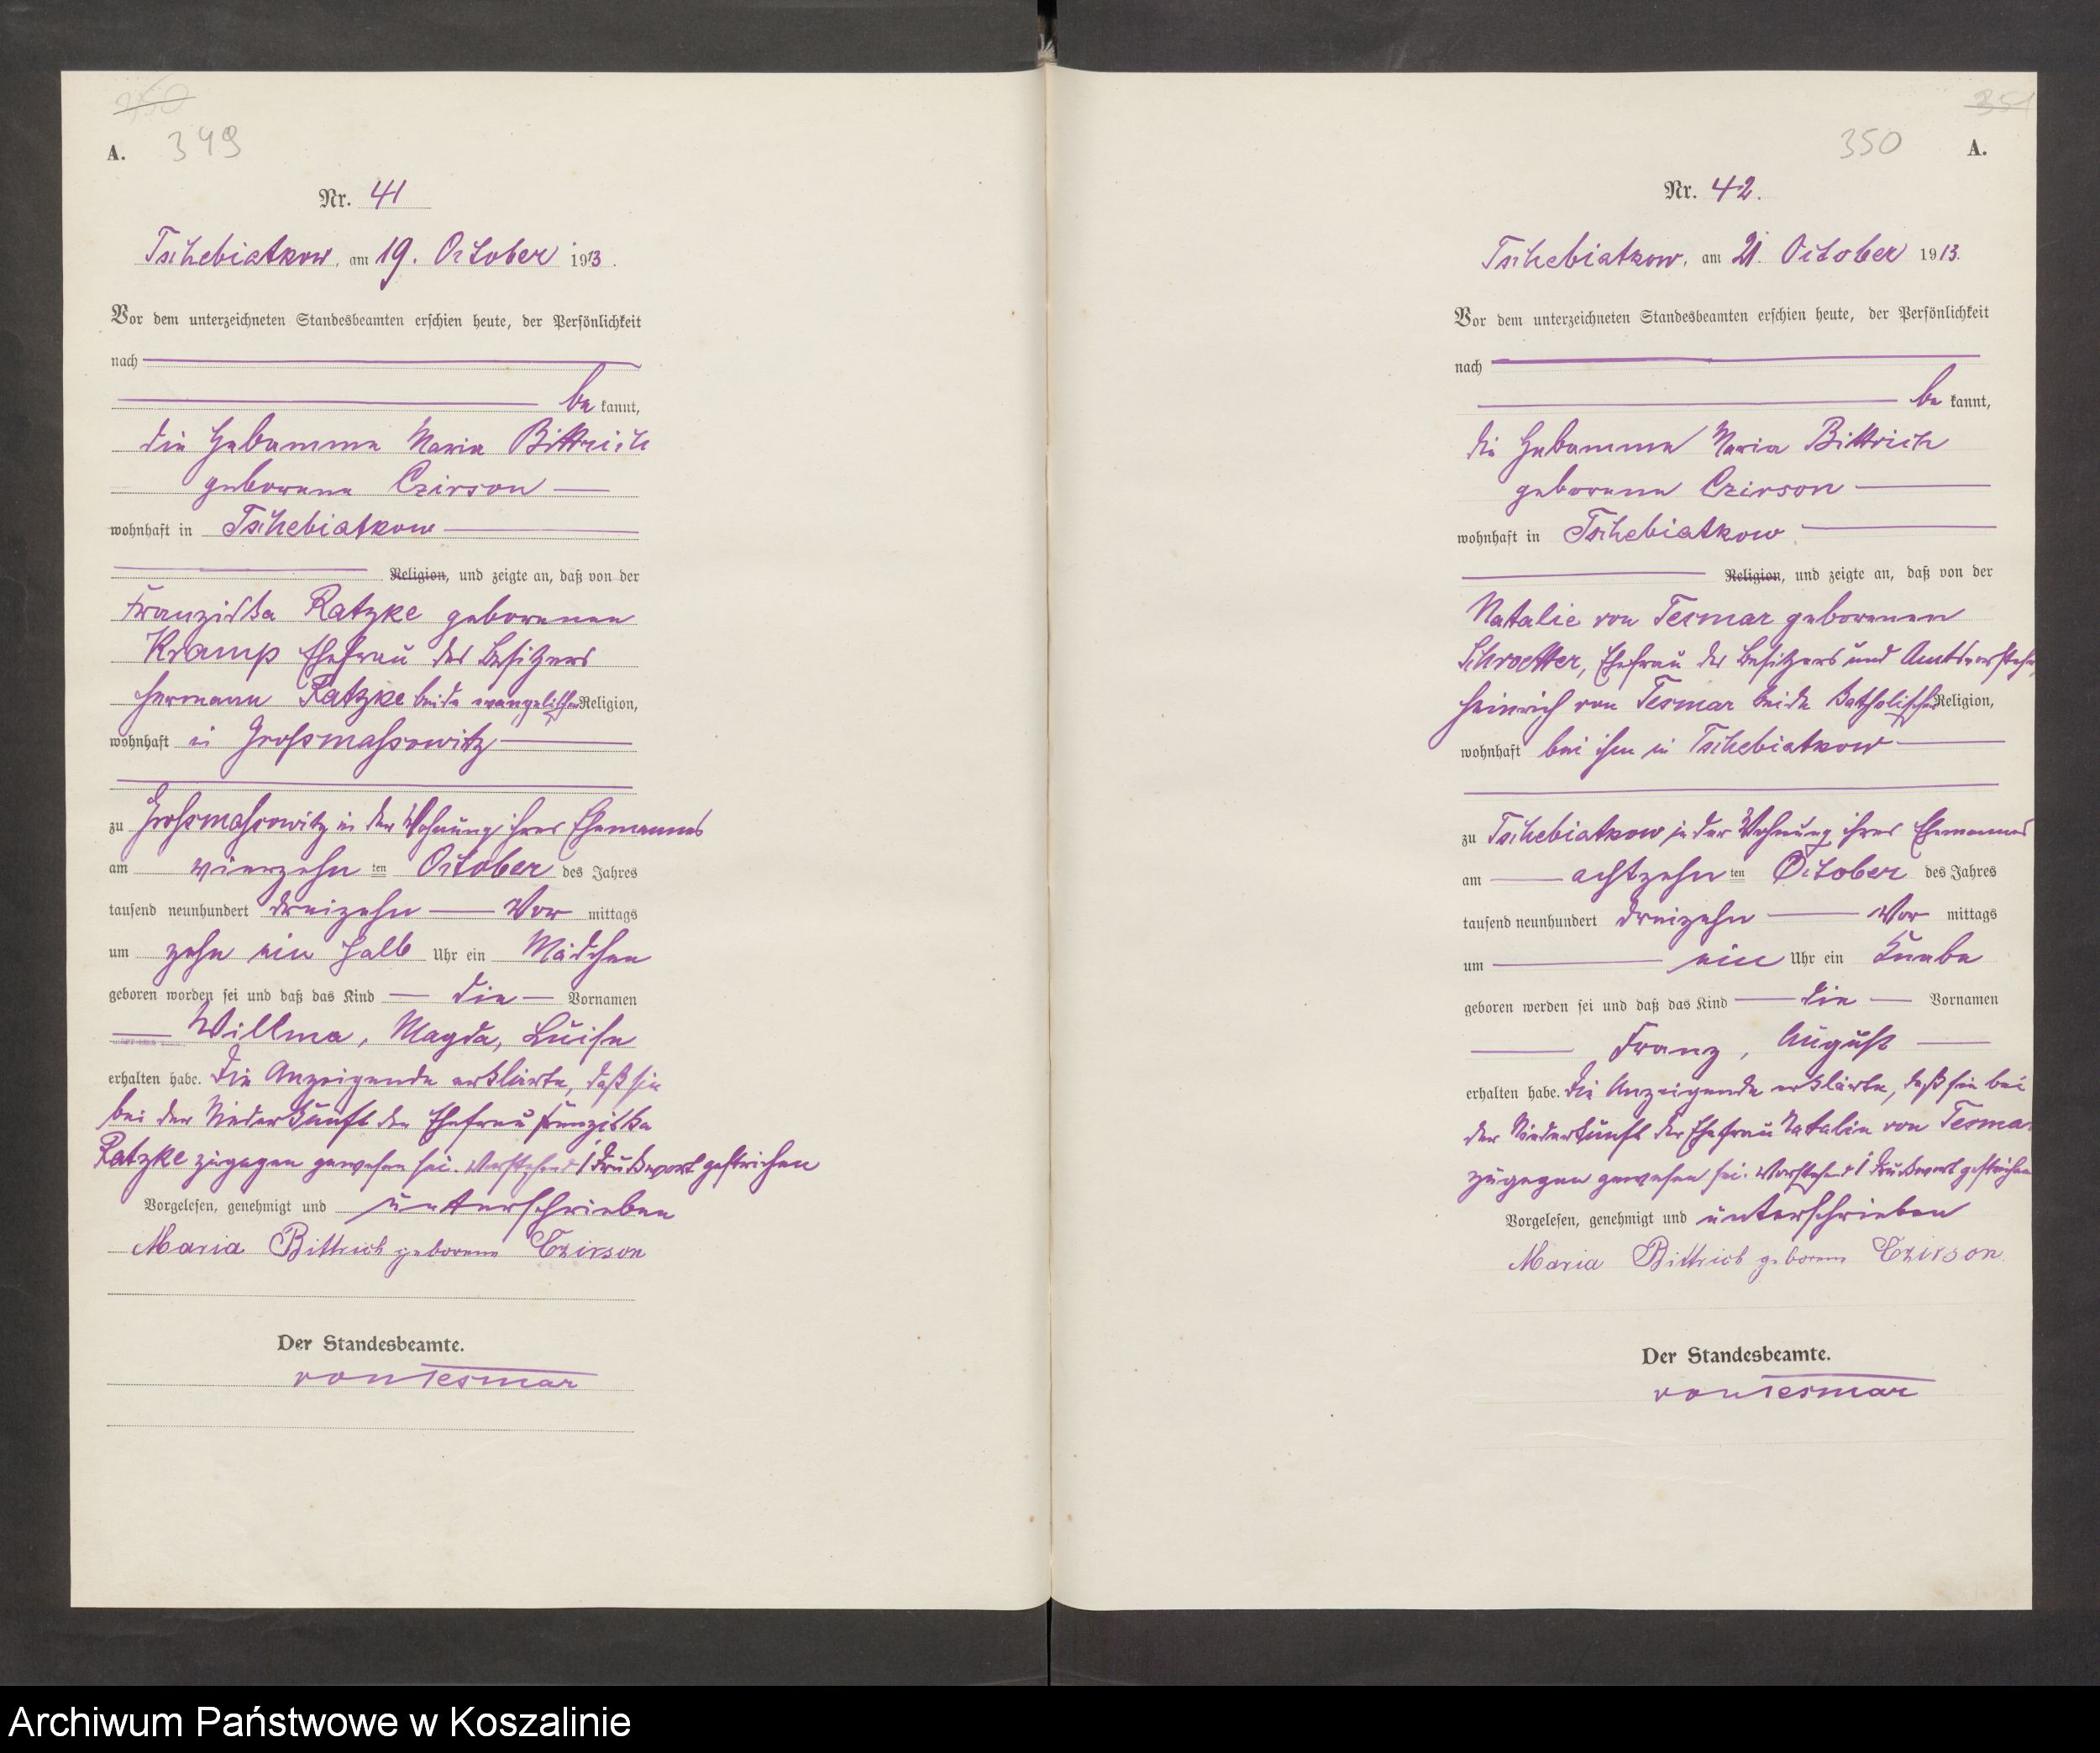 250
A. 349
Nr. 41
Tschebiatkow, am 19. October 1913.
Vor dem unterzeichneten Standesbeamten erschien heute, der Persönlichkeit
nach
be kannt,
die Hebamme Maria Bittrich
geborene Czirson
wohnhaft in Tschebiatkow
Religion, und zeigte an, daß von der
Franziska Ratzke geborenen
Kramp Ehefrau des Besitzers
Hermann Ratzke beide evangelischer Religion,
wohnhaft in Grossmassowitz
zu Grossmassowitz in der Wohnung ihres Ehemannes
am vierzehn ten October des Jahres
tausend neunhundert dreizehn Vor mittags
um zehn ein halb Uhr ein Mädchen
geboren worden sei und daß das Kind die Vornamen
Willma, Magda, Luise
erhalten habe. Die Anzeigende erklärte, daß sie
bei der Niederkunft der Ehefrau Franziska
Ratzke zugegen gewesen sei. Vorstehend 1 Druckwort gestrichen
Vorgelesen, genehmigt und unterschrieben
Maria Bittrich geborene Czirson
Der Standesbeamte.
von Tesmar
351
350 A.
Nr. 42.
Tschebiatkow, am 21. October 1913.
Vor dem unterzeichneten Standesbeamten erschien heute, der Persönlichkeit
nach
be kannt,
die Hebamme Maria Bittrich
geborene Czirson
wohnhaft in Tschebiatkow
Religion, und zeigte an, daß von der
Natalie von Tesmar geborenen
Schroetter, Ehefrau des Besitzers und Amtsvorstehers
Heinrich von Tesmar beide katholischer Religion,
wohnhaft bei ihm in Tschebiatkow
zu Tschebiatkow in der Wohnung ihres Ehemannes
am achtzehn ten October des Jahres
tausend neunhundert dreizehn Vor mittags
um ein Uhr ein Knabe
geboren werden sei und daß das Kind die Vornamen
Franz, August
erhalten habe. Die Anzeigende erklärte, daß sie bei
der Niederkunft der Ehefrau Natalie von Tesmar
zugegen gewesen sei. Vorstehend 1 Druckwort gestrichen
Vorgelesen, genehmigt und unterschrieben
Maria Bittrich geborene Czirson
Der Standesbeamte.
von Tesmar
Archiwum Państwowe w Koszalinie